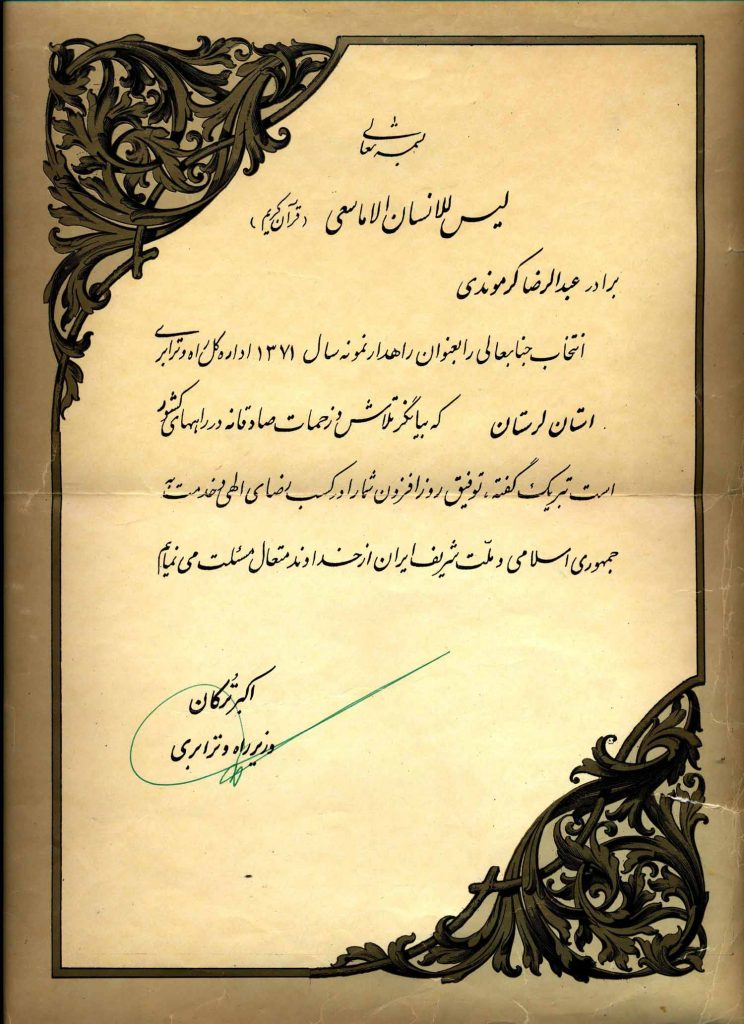 بسمه تعالی
لیس للانسان الا ما سعی (قرآن کریم)
برادر عبدالرضا کرموندی
انتخاب جنابعالی را بعنوان راهدار نمونه سال ۱۳۷۱ اداره کل راه و ترابری
استان لرستان که بیانگر تلاش و زحمات صادقانه در راههای کشور
است تبریک گفته، توفیق روز افزون شما را در کسب رضای الهی و خدمت به
جمهوری اسلامی و ملّت شریف ایران از خداوند متعال مسئلت می نمایم
اکبر تُرکان
وزیر راه و ترابری